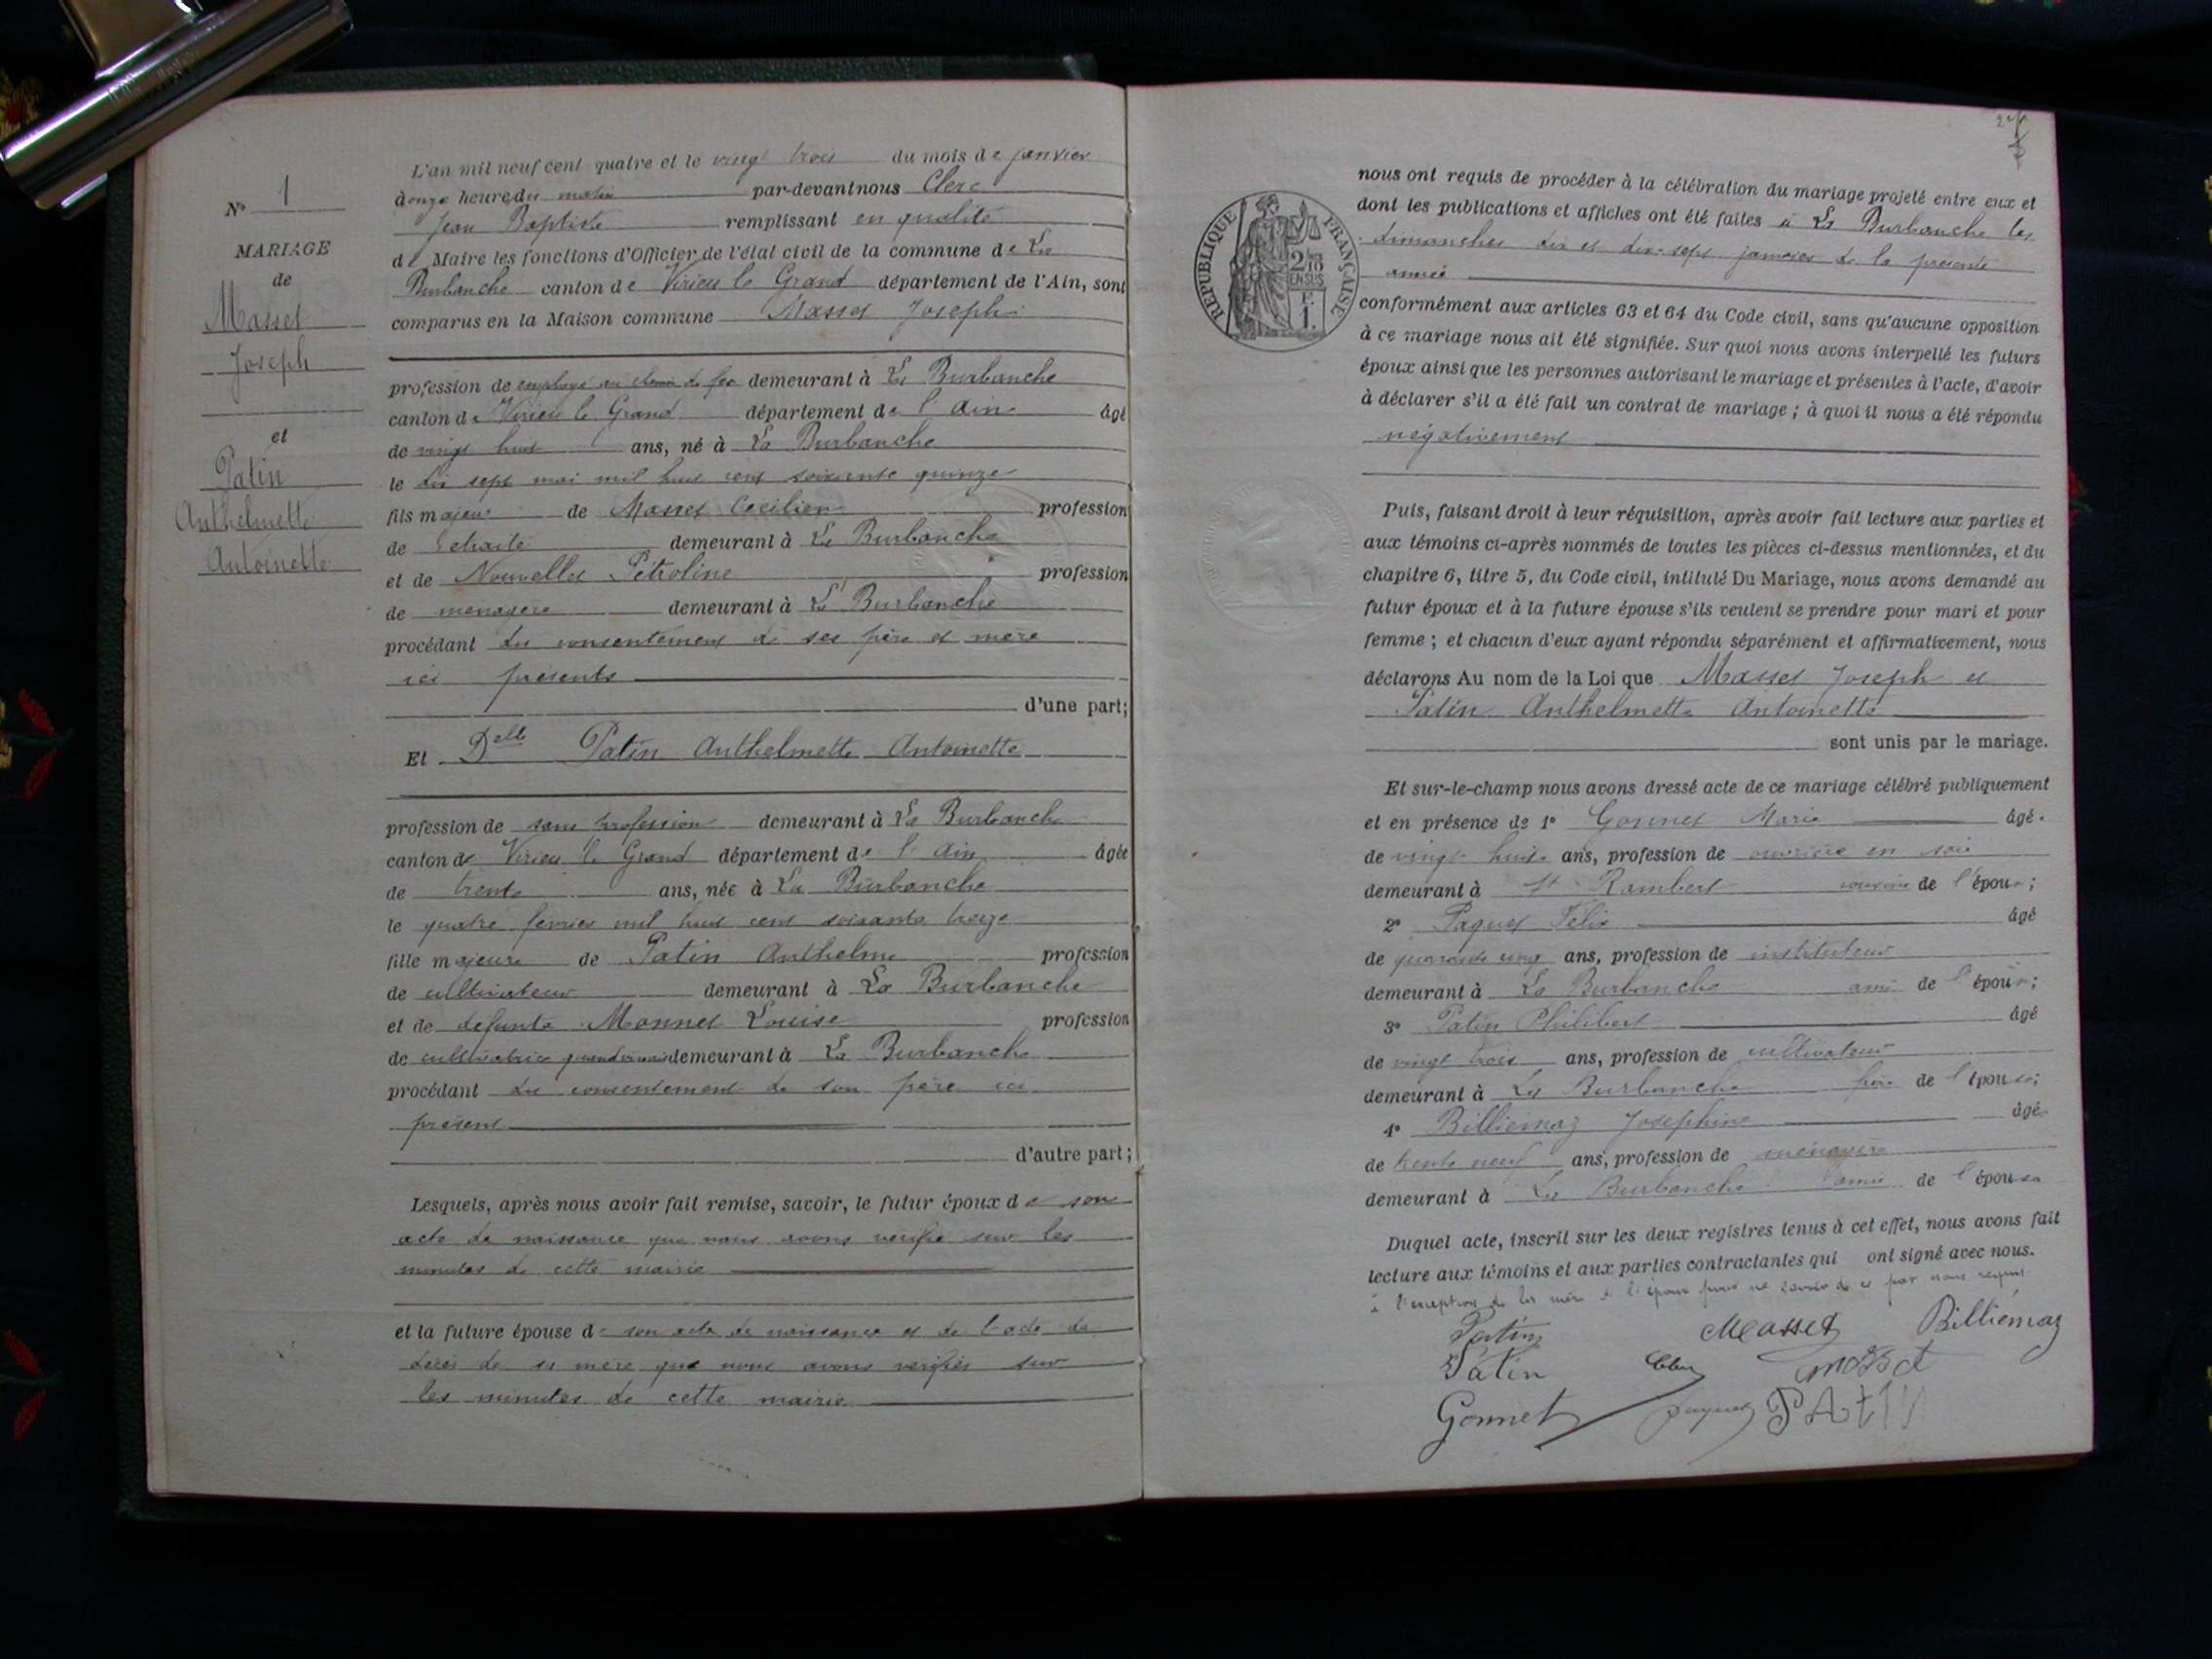 N° 1
MARIAGE
de
Masset
Joseph
et
Patin
Anthelmette
Antoinette
L'an mil neuf cent quatre et le vingt trois du mois de janvier
à onze heure du matin par-devant nous Clerc
Jean Baptiste remplissant en qualité
de Maire les fonctions d'Officier de l'état civil de la commune de La
Burbanche canton de Virieu le Grand département de l'Ain, sont
comparus en la Maison commune Masset Joseph
profession de employé au chemin de fer demeurant à La Burbanche
canton de Virieu le Grand département de l'Ain âgé
de vingt huit ans, né à La Burbanche
le dix sept mai mil huit cent soixante quinze
fils majeur de Masset Cécilien profession
de retraité demeurant à La Burbanche
et de Nouvellet Pétroline profession
de ménagère demeurant à La Burbanche
procédant du consentement de ses père et mère
ici présents
d'une part;
Et Delle Patin Anthelmette Antoinette
profession de sans profession demeurant à La Burbanche
canton de Virieu le Grand département de l'Ain âgée
de trente ans, née à La Burbanche
le quatre février mil huit cent soixante treize
fille majeure de Patin Anthelme profession
de cultivateur demeurant à La Burbanche
et de defunte Monnet Louise profession
de cultivatrice quand vivait demeurant à La Burbanche
procédant du consentement de son père ici
présent
d'autre part;
Lesquels, après nous avoir fait remise, savoir, le futur époux de son
acte de naissance que nous avons vérifié sur les
minutes de cette mairie
et la future épouse de son acte de naissance et de l'acte de
décès de sa mère que nous avons vérifiés sur
les minutes de cette mairie
REPUBLIQUE FRANÇAISE
2/10
EN SUS
F.
1.
nous ont requis de procéder à la célébration du mariage projeté entre eux et
dont les publications et affiches ont été faites à La Burbanche les
dimanches dix et dix-sept janvier de la présente
année
conformément aux articles 63 et 64 du Code civil, sans qu'aucune opposition
à ce mariage nous ait été signifiée. Sur quoi nous avons interpellé les futurs
époux ainsi que les personnes autorisant le mariage et présentes à l'acte, d'avoir
à déclarer s'il a été fait un contrat de mariage ; à quoi il nous a été répondu
négativement
Puis, faisant droit à leur réquisition, après avoir fait lecture aux parties et
aux témoins ci-après nommés de toutes les pièces ci-dessus mentionnées, et du
chapitre 6, titre 5, du Code civil, intitulé Du Mariage, nous avons demandé au
futur époux et à la future épouse s'ils veulent se prendre pour mari et pour
femme ; et chacun d'eux ayant répondu séparément et affirmativement, nous
déclarons Au nom de la Loi que Masset Joseph et
Patin Anthelmette Antoinette
sont unis par le mariage.
Et sur-le-champ nous avons dressé acte de ce mariage célébré publiquement
et en présence de 1° Gonnet Marie âgé
de vingt huit ans, profession de ouvrière en soie
demeurant à St Rambert cousine de l'époux;
2° Paquet Félix âgé
de quarante cinq ans, profession de instituteur
demeurant à La Burbanche ami de l'époux;
3° Patin Philibert âgé
de vingt trois ans, profession de cultivateur
demeurant à La Burbanche frère de l'épouse;
4° Billiemaz Josephine âgé
de trente neuf ans, profession de ménagère
demeurant à La Burbanche amie de l'épouse
Duquel acte, inscrit sur les deux registres tenus à cet effet, nous avons fait
lecture aux témoins et aux parties contractantes qui ont signé avec nous.
à l'exception de la mère de l'époux pour ne savoir de ce par nous requis
Patin Masset Billiémaz
Patin Clerc masset
Gonnet paquet PAtiN